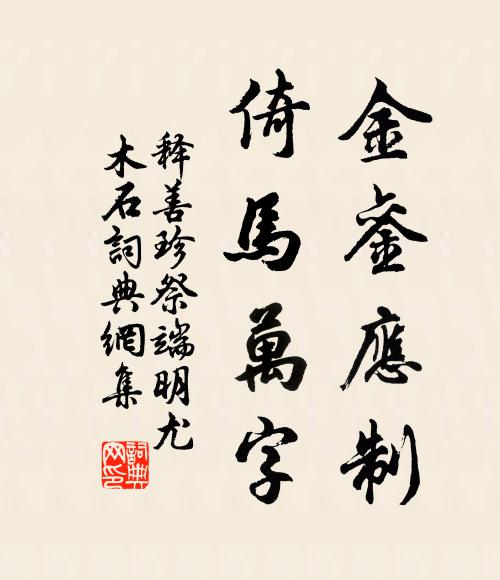 金銮應制
倚馬萬字
释善珍祭端明尤
木石詞典網集
詞典網印